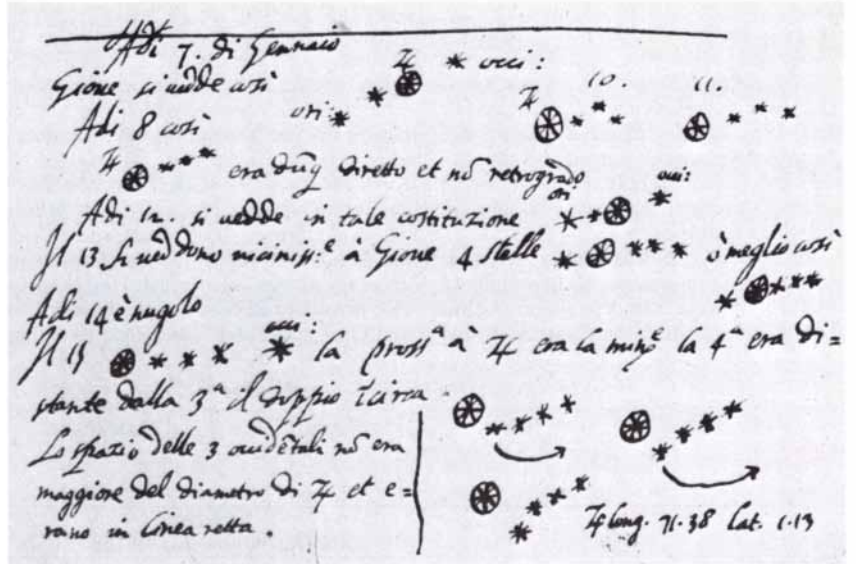 Adi 7. di Gennaio
Gione si vedde così
ori: ♃ occi:
Adi 8 così
♃ era dūq diretto et nō retrogrado
♃ 10. 11.
ori occi:
Adi 12. si vedde in tale costituzione
Il 13 si veddono vicinissᵉ à Gione 4 stelle ò meglio così
Adi 14 è nugolo
Il 15 occi: la prossᵃ à ♃ era la minᵉ la 4ᵃ era di=
stante dalla 3ᵃ il doppio circa
Lo spazio delle 3 occidētali nō era
maggiore del diametro di ♃ et e=
rano in linea retta.
♃ long. 71.38 lat. 1.13